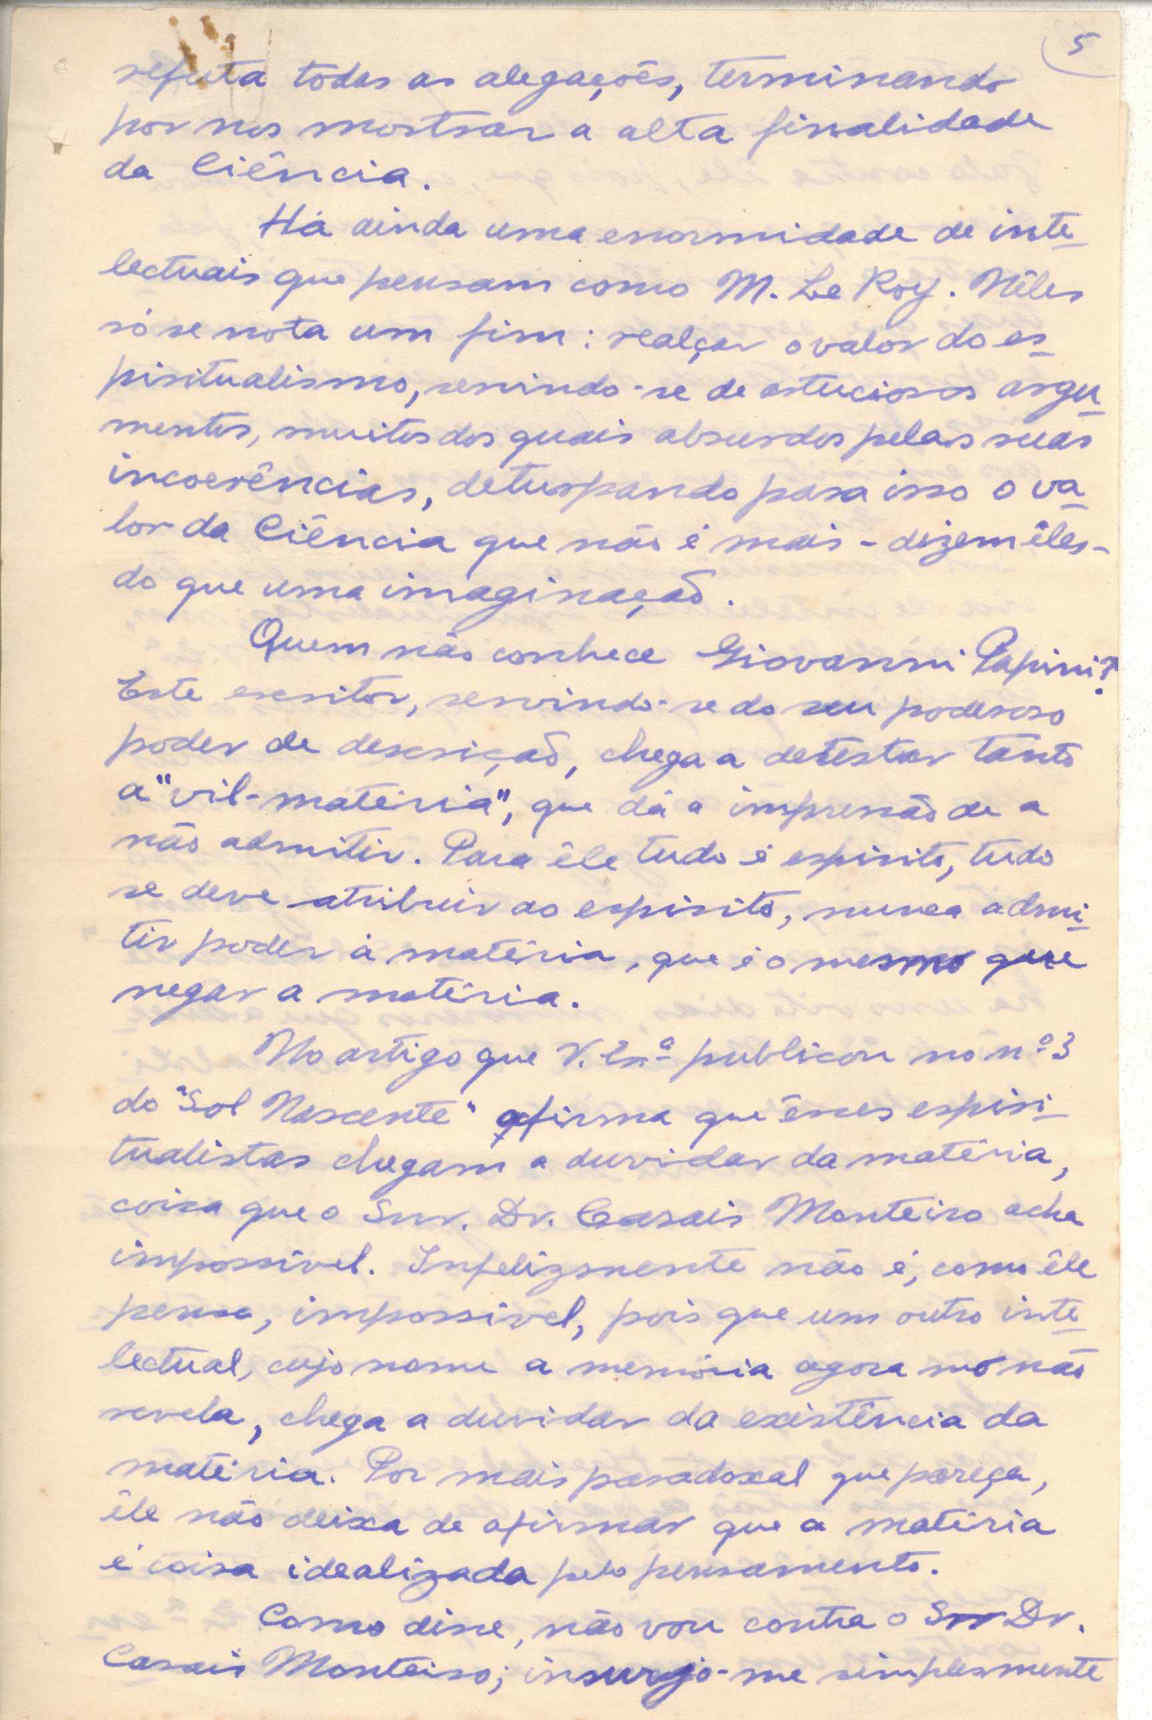 5
refuta todas as alegações, terminando
por nos mostrar a alta finalidade
da Ciência.
Há ainda uma enormidade de inte-
lectuais que pensam como M. Le Roy. Nêles
só se nota um fim: realçar o valor do es-
piritualismo, servindo-se de astuciosos argu-
mentos, muitos dos quais absurdos pelas suas
incoerências, deturpando para isso o va-
lor da Ciência que não é mais - dizem êles -
do que uma imaginação.
Quem não conhece Giovanni Papini?
Este escritor, servindo-se do seu poderoso
poder de descrição, chega a detestar tanto
a "vil-matéria", que dá a impressão de a
não admitir. Para êle tudo é espírito, tudo
se deve atribuir ao espírito, nunca admi-
tir poder à matéria, que é o mesmo que
negar a matéria.
No artigo que V. Exª publicou no nº 3
do "Sol Nascente" afirma que êsses espiri-
tualistas chegam a duvidar da matéria,
coisa que o Snr. Dr. Casais Monteiro acha
impossível. Infelizmente não é, como êle
pensa, impossível, pois que um outro inte-
lectual, cujo nome a memória agora mo não
revela, chega a duvidar da existência da
matéria. Por mais paradoxal que pareça,
êle não deixa de afirmar que a matéria
é coisa idealizada pelo pensamento.
Como disse, não vou contra o Snr Dr.
Casais Monteiro; insurjo-me simplesmente